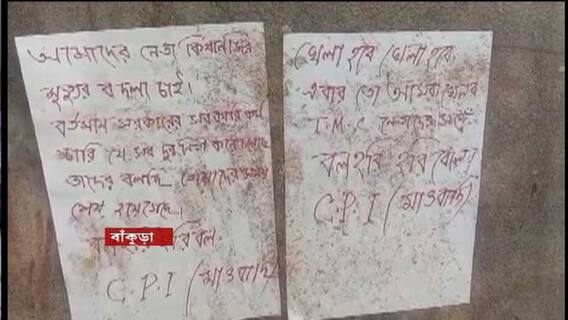 আমাদের নেতা কিষানজির
মৃত্যুর বদলা চাই।
বর্তমান সরকারের সরকারি কর্ম
চারি যে সব দুর্নীতি করে
তাদের বলছি তোমাদের সময়
শেষ হয়ে গেছে।
হরি বল
C.P.I (মাওবাদী)
খেলা হবে খেলা হবে,
এবার তো আমরা খেলব
T.M.C নেতাদের সঙ্গে
বল হরি হরি বোল।
C.P.I (মাওবাদী)
বাঁকুড়া